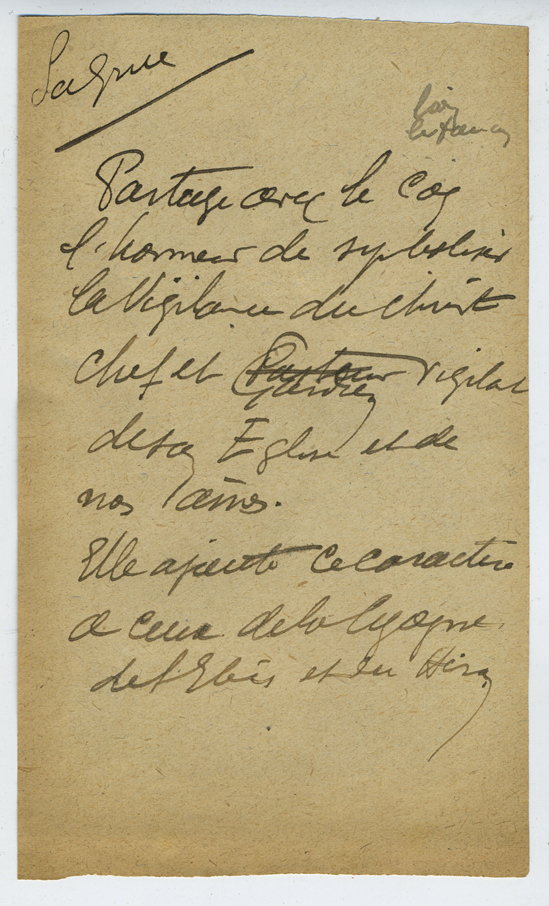 La Grue
Voir
Partage avec le Coq
l'honneur de symboliser
la Vigilance du Christ
chef et Pasteur Gardien vigilant
de son Eglise et de
nos âmes.
Elle ajoute ce caractère
à ceux de la Cigogne
de l'Ibis et du Héron